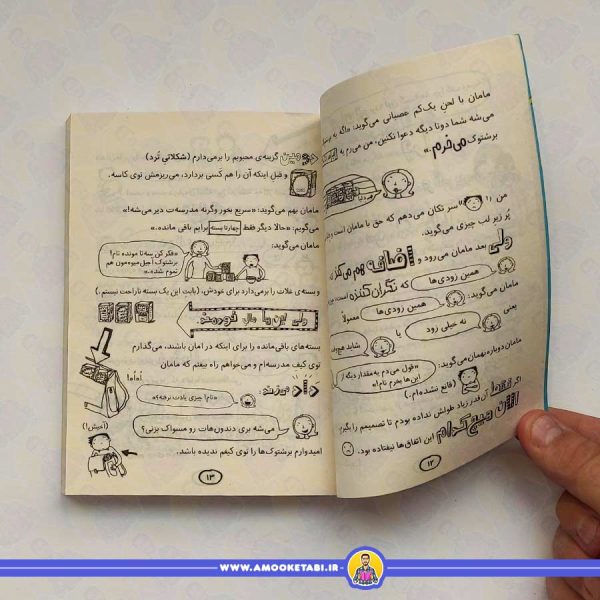 مامان با لحنِ یک‌کم عصبانی می‌گوید: «اگه یه
می‌شه شما دوتا دیگه دعوا نکنین، من می‌رم یه
برشتوک می‌خرم.»
من سر تکان می‌دهم که حق با مامان است و
پُر زیر لب چیزی می‌گوید.
ولی بعد مامان می‌رود و اضافه هم می‌کند
همین زودی‌ها که نگران‌کننده است،
مامان می‌گوید: همین زودی‌ها معمولاً
یعنی نه خیلی زود یا شاید هم
مامان دوباره بهمان می‌گوید: «قول می‌دم یه مقدار دیگه از
این‌ها بخرم تام!»
(قانع نشده‌ام.)
اگر آن‌قدر زیاد طولش نداده بودم تا تصمیمم را بگیرم
الان هیچ‌کدام این اتفاق‌ها نیفتاده بود.
۱۲
دومین گزینه‌ی محبوبم را برمی‌دارم (شکلاتیِ تُرد)
و قبل اینکه آن را هم کسی بردارد، می‌ریزمش توی کاسه.
مامان بهم می‌گوید: «سریع بخور وگرنه مدرسه‌ت دیر می‌شه!»
می‌گویم: «حالا دیگر فقط چهارتا بسته برایم باقی مانده.»
مامان می‌گوید:
«فکر کن سه‌تا مونده تام!
برشتوک آجیل میوه‌مون هم
تموم شده.»
و بسته‌ی غلات را برمی‌دارد برای خودش، (بابت این یک بسته ناراحت نیستم.)
ولی این یا مال خودمند
بسته‌های باقی‌مانده را برای اینکه در امان باشند، می‌گذارم
توی کیف مدرسه‌ام و می‌خواهم راه بیفتم که مامان
داد می‌زند:
«تام! چیزی یادت نرفه؟»
می‌شه بری دندون‌هات رو مسواک بزنی؟
(آخیش!)
امیدوارم برشتوک‌ها را توی کیفم ندیده باشد.
۱۳
WWW.AMOOKETABI.IR